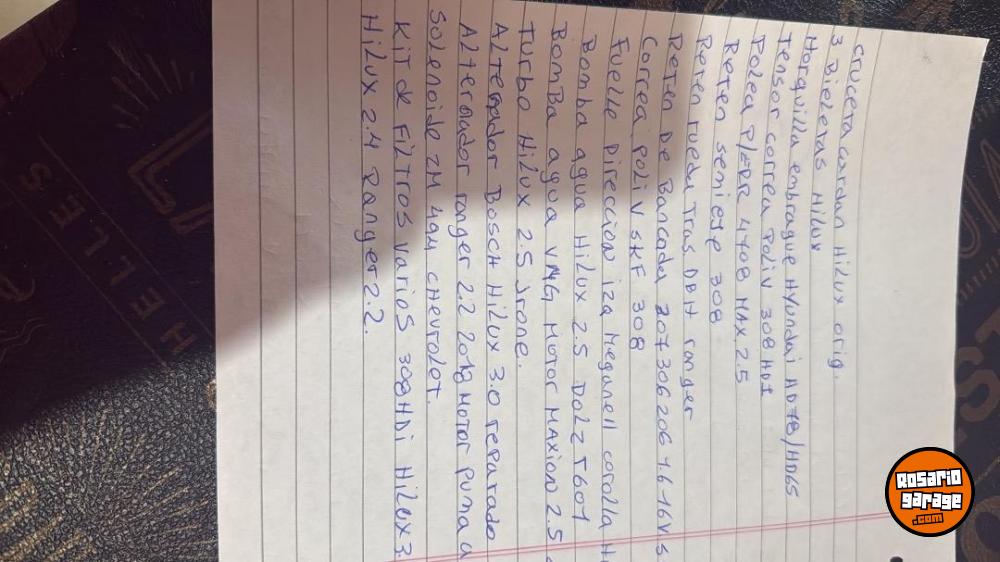 Cruceta cardan Hilux orig.
3 Bieletas Hilux
Horquilla embrague Hyundai HD78/HD65
Tensor correa Poliv 308 HDI
Polea P/EDR 4708 MAX 2.5
Reten semieje 308
Reten rueda Tras DBH ranger
Reten De Bancada 207 306 206 1.6 16V S
Correa poliv SKF 308
Fuelle Direccion iza MeganeII corolla H
Bomba agua Hilux 2.5 Dolz T601
BomBa agua VMG Motor MAXion 2.5
Turbo Hilux 2.5 Jrone.
Alternador Bosch Hilux 3.0 reparado
Alternador ranger 2.2 2018 Motor puma a
Solenoide ZM 4911 chevrolet.
Kit de Filtros varios 308HDi Hilux 3.
Hilux 2.4 Ranger 2.2.
HELLES
ROSARIO
garage
.com